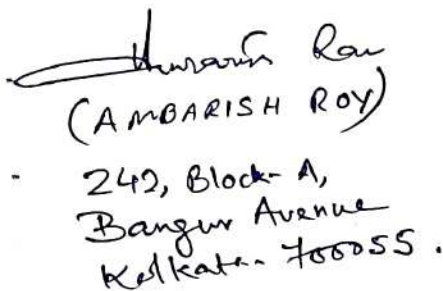 Ambarish Roy
(AMBARISH ROY)
- 242, Block-A,
Bangur Avenue
Kolkata-700055.